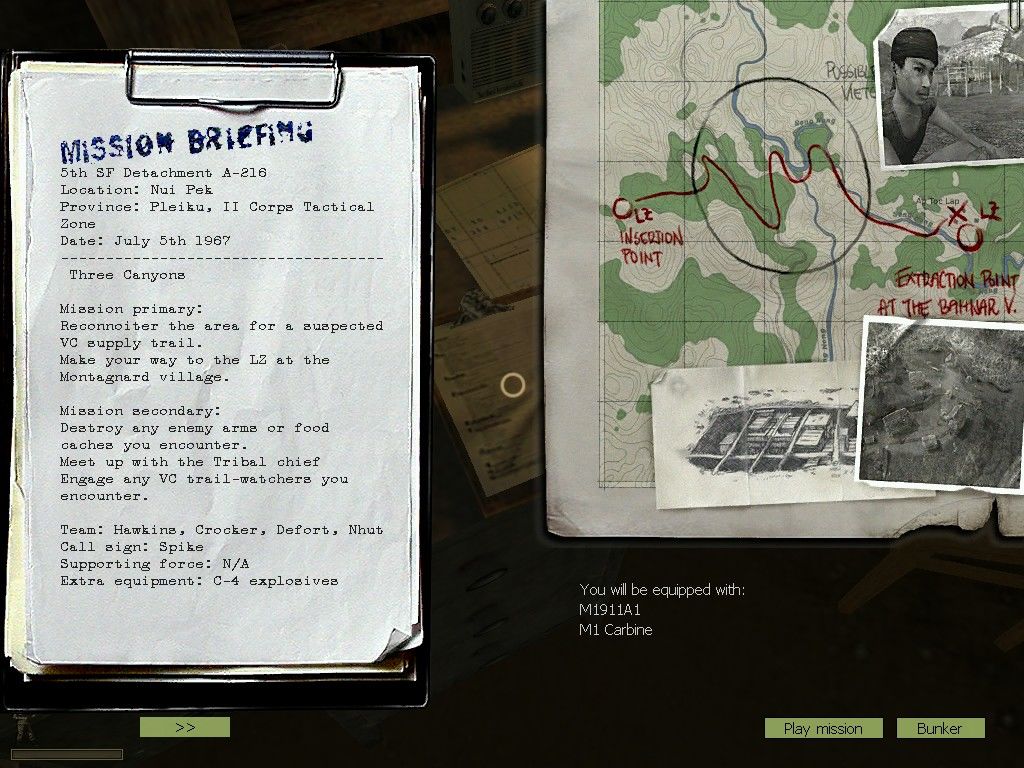 MISSION BRIEFING
5th SF Detachment A-216
Location: Nui Pek
Province: Pleiku, II Corps Tactical
Zone
Date: July 5th 1967
------------------------------------
Three Canyons
Mission primary:
Reconnoiter the area for a suspected
VC supply trail.
Make your way to the LZ at the
Montagnard village.
Mission secondary:
Destroy any enemy arms or food
caches you encounter.
Meet up with the Tribal chief
Engage any VC trail-watchers you
encounter.
Team: Hawkins, Crocker, Defort, Nhut
Call sign: Spike
Supporting force: N/A
Extra equipment: C-4 explosives
>>
POSSIBLE
VIETC
LZ
INSERTION
POINT
LZ
EXTRACTION POINT
AT THE BAHNAR V.
You will be equipped with:
M1911A1
M1 Carbine
Play mission
Bunker